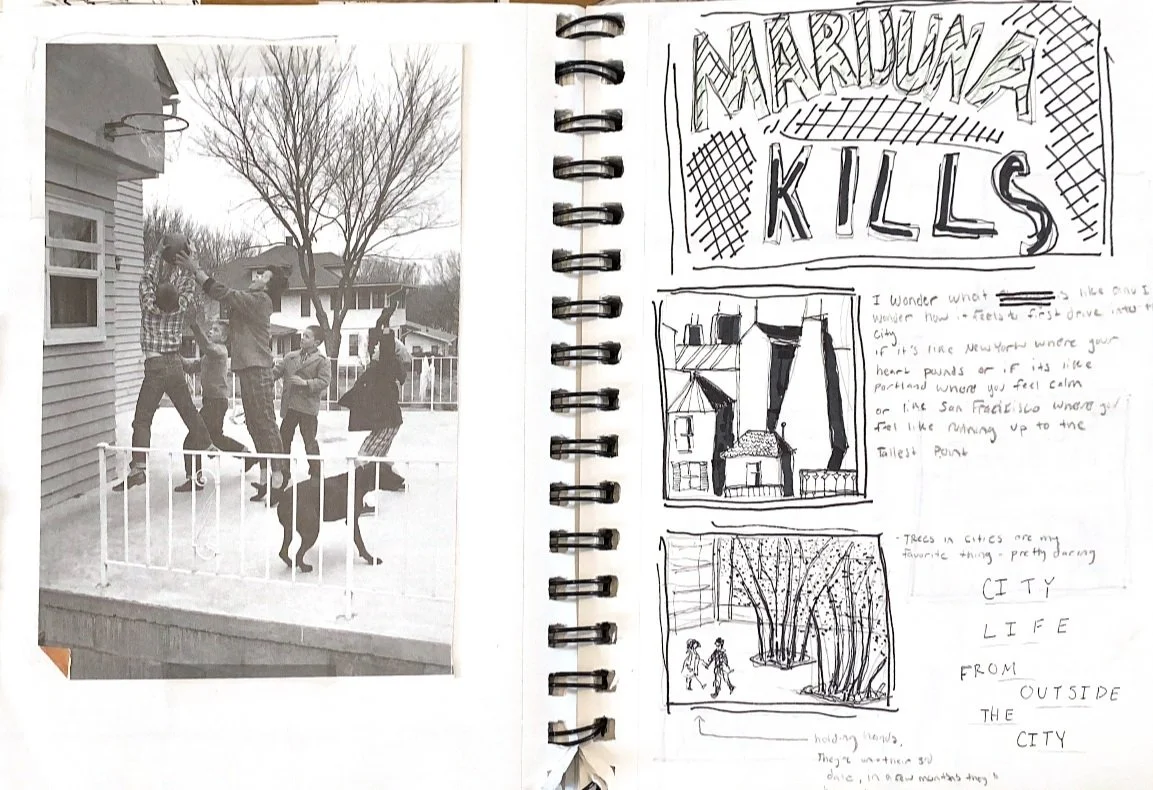 MARIJUNA
KILLS
I wonder what s like and I
wonder how it feels to first drive into the
city
if it's like New York where your
heart pounds or if its like
portland where you feel calm
or like San Fracisico where you
feel like running up to the
Tallest Point
- Trees in cities are my
favorite thing - pretty daring
CITY
LIFE
FROM
OUTSIDE
THE
CITY
holding hands.
They're on their 3rd
date, in a few months they'll